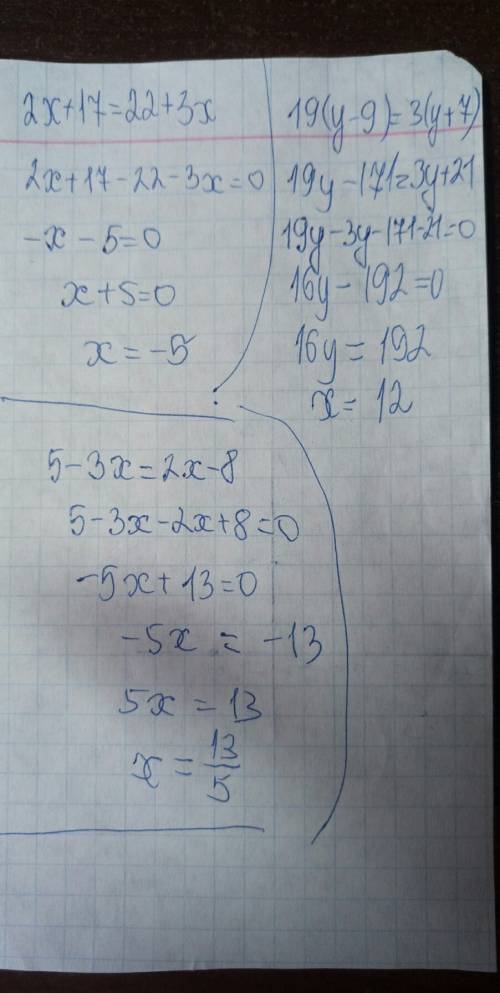 2x+17=22+3x
2x+17-22-3x=0
-x-5=0
x+5=0
x=-5
19(y-9)=3(y+7)
19y-171=3y+21
19y-3y-171-21=0
16y-192=0
16y=192
x=12
5-3x=2x-8
5-3x-2x+8=0
-5x+13=0
-5x=-13
5x=13
x=13/5